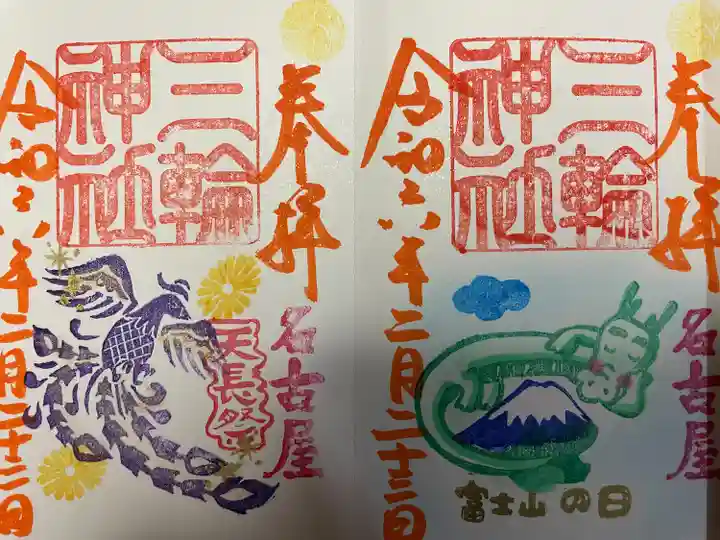 奉拝
名古屋
三輪
神社
富士山の日
令和六年二月二十三日
奉拝
名古屋
三輪
神社
天長祭
令和六年二月二十三日